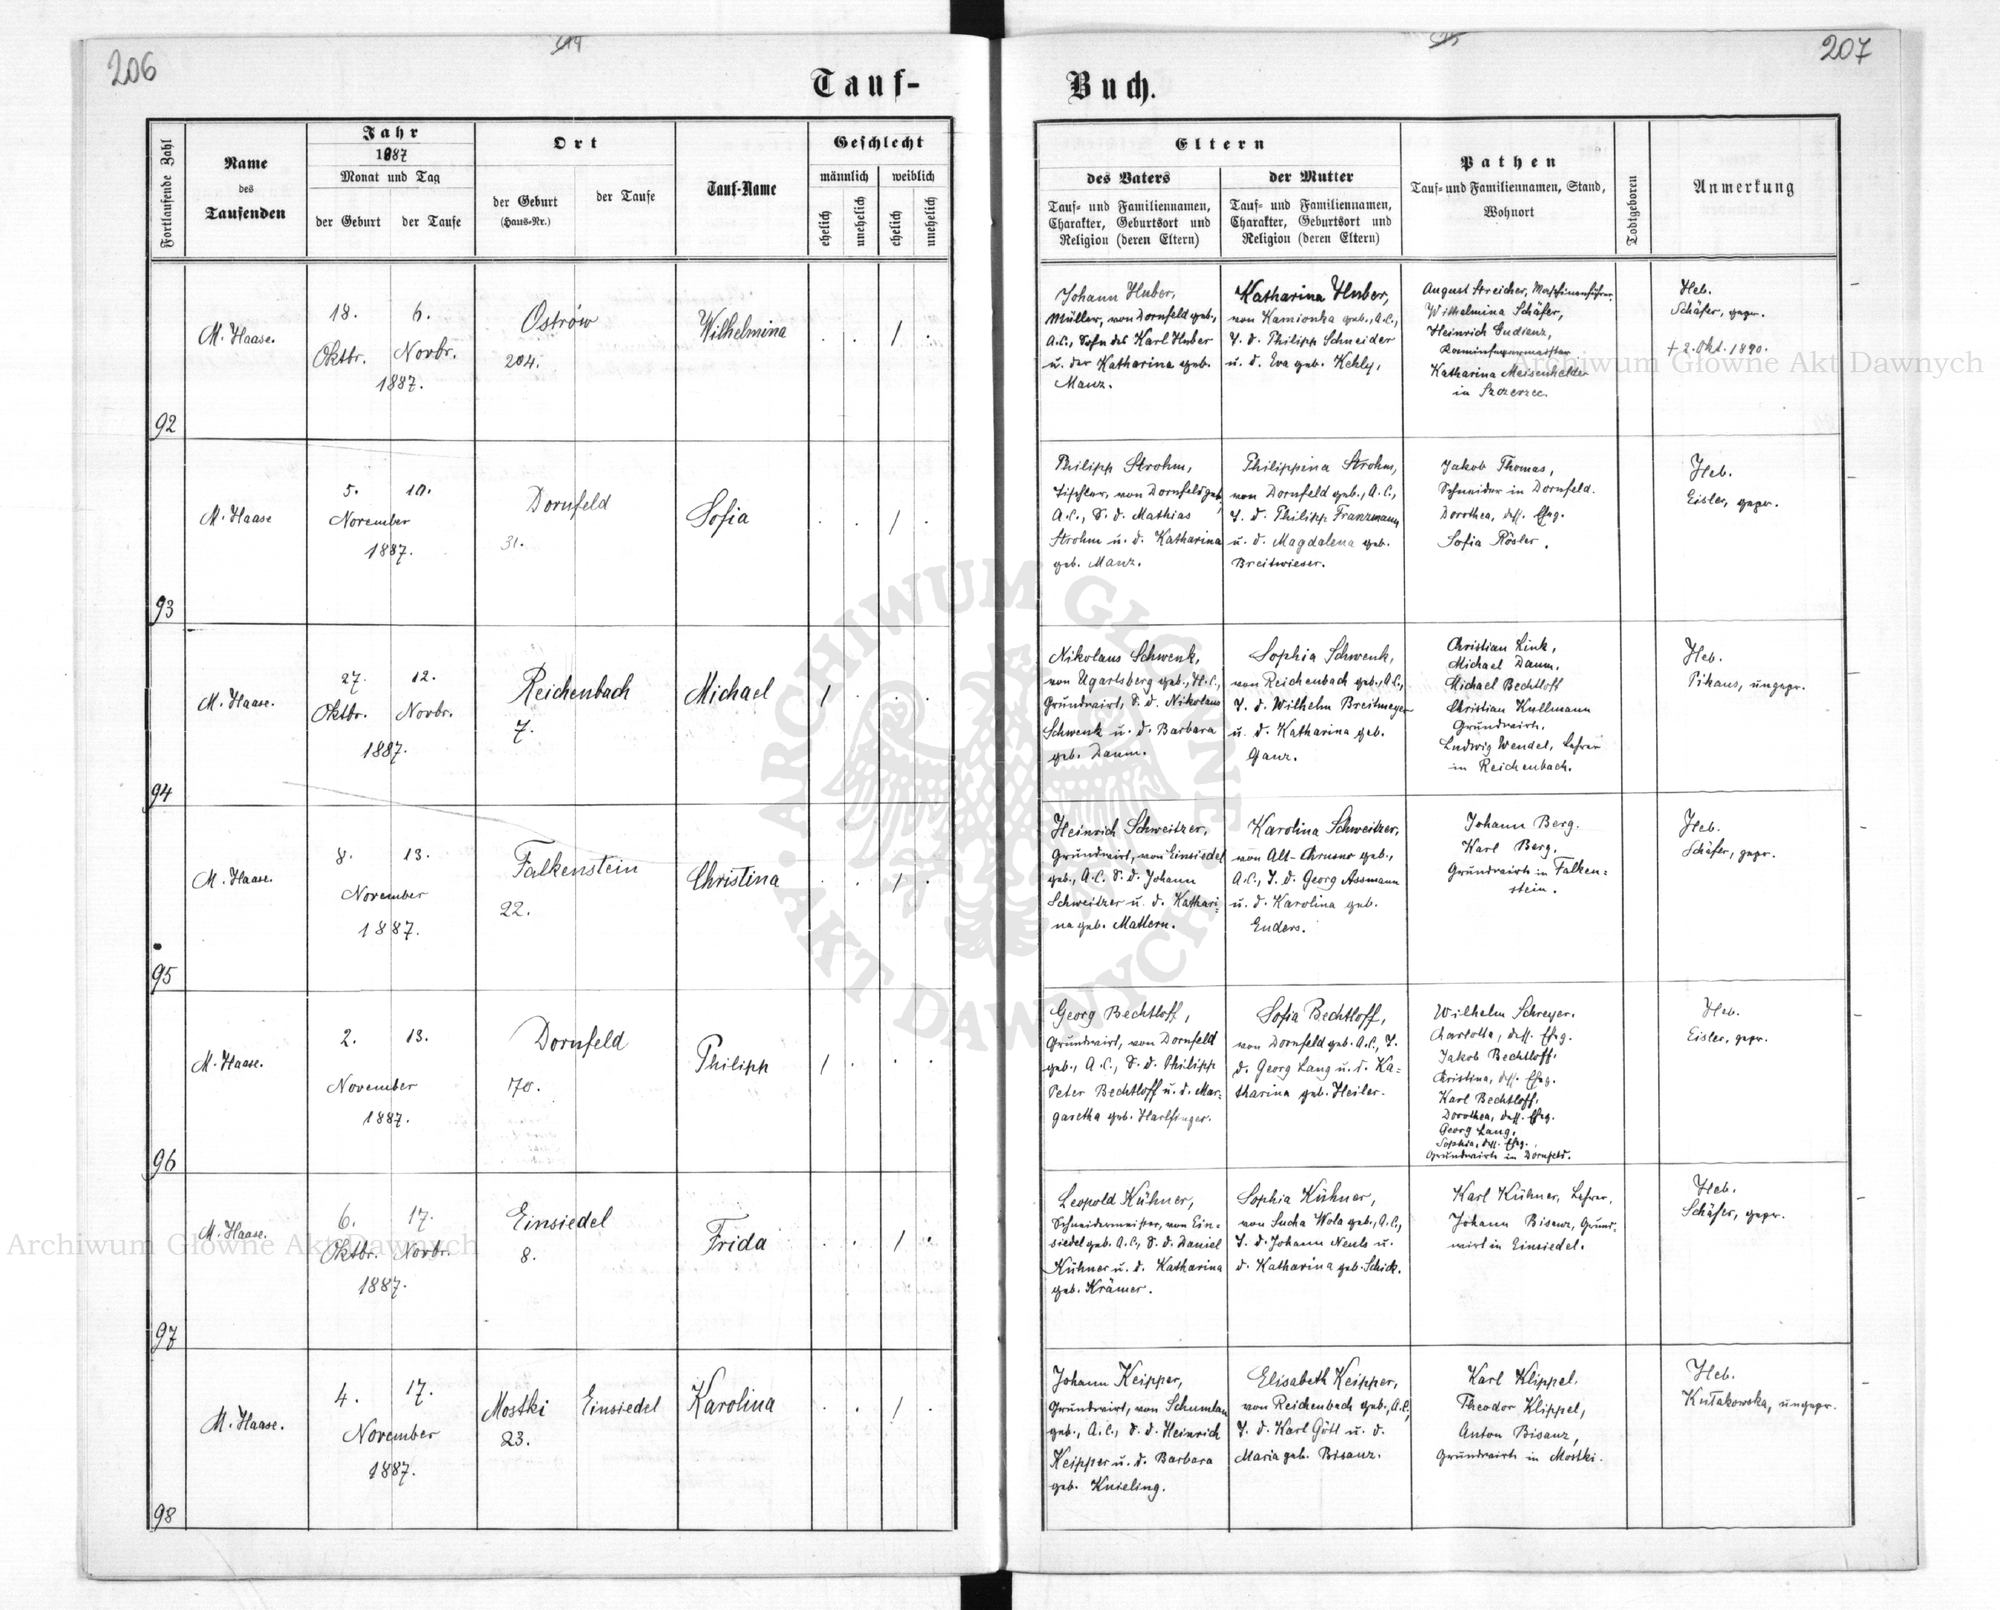 206
207
Tauf-
Buch.
Fortlaufende Zahl
Name
des
Taufenden
Jahr
1887
Monat und Tag
der Geburt
der Taufe
Ort
der Geburt
(Haus-Nr.)
der Taufe
Tauf-Name
Geschlecht
männlich
weiblich
ehelich
unehelich
ehelich
unehelich
Eltern
des Vaters
Tauf- und Familiennamen,
Charakter, Geburtsort und
Religion (deren Eltern)
der Mutter
Tauf- und Familiennamen,
Charakter, Geburtsort und
Religion (deren Eltern)
Pathen
Tauf- und Familiennamen, Stand,
Wohnort
Todtgeboren
Anmerkung
92
M. Haase.
18. 6.
Oktbr. Novbr.
1887.
Ostrów
204.
Wilhelmina
. . 1 .
Johann Huber,
Müller, von Dornfeld geb.,
A.C., Sohn des Karl Huber
u. der Katharina geb.
Manz.
Katharina Huber,
von Kamionka geb., A.C.,
T. d. Philipp Schneider
u. d. Eva geb. Kehly,
August Streicher, Maschinenführer
Wilhelmina Schäfer,
Heinrich Gudienz,
Kaminfegermeister
Katharina Meisenhelder
in Szczerzec.
Heb.
Schäfer, gepr.
+ 2. Okt. 1890.
93
M. Haase
5. 10.
November
1887.
Dornfeld
31.
Sofia
. . 1 .
Philipp Strohm,
Tischler, von Dornfeld geb.,
A.C., S. d. Mathias
Strohm u. d. Katharina
geb. Manz.
Philippina Strohm,
von Dornfeld geb., A.C.,
T. d. Philipp Franzmann
u. d. Magdalena geb.
Breitwieser.
Jakob Thomas,
Schneider in Dornfeld.
Dorothea, dess. Eheg.
Sofia Rösler.
Heb.
Eisler, gepr.
94
M. Haase.
27. 12.
Oktbr. Novbr.
1887.
Reichenbach
7.
Michael
1 . . .
Nikolaus Schwenk,
von Ugartsberg geb., H.C.,
Grundwirt, S. d. Nikolaus
Schwenk u. d. Barbara
geb. Daum.
Sophia Schwenk,
von Reichenbach geb., A.C.,
T. d. Wilhelm Breitmeyer
u. d. Katharina geb.
Ganz.
Christian Link,
Michael Daum,
Michael Bechtloff
Christian Kullmann
Grundwirte,
Ludwig Wendel, Lehrer
in Reichenbach.
Heb.
Pikaus, ungepr.
95
M. Haase.
8. 13.
November
1887.
Falkenstein
22.
Christina
. . 1 .
Heinrich Schweitzer,
Grundwirt, von Einsiedel
geb., A.C. S. d. Johann
Schweitzer u. d. Kathari-
na geb. Mattern.
Karolina Schweitzer,
von Alt-Chrusno geb.,
A.C., T. d. Georg Assmann
u. d. Karolina geb.
Enders.
Johann Berg.
Karl Berg,
Grundwirte in Falken-
stein.
Heb.
Schäfer, gepr.
96
M. Haase.
2. 13.
November
1887.
Dornfeld
70.
Philipp
1 . . .
Georg Bechtloff,
Grundwirt, von Dornfeld
geb., A.C., S. d. Philipp
Peter Bechtloff u. d. Mar-
garetha geb. Harlfinger.
Sofia Bechtloff,
von Dornfeld geb. A.C., T.
d. Georg Lang u. d. Ka-
tharina geb. Heiler.
Wilhelm Schreyer.
Charlotta, dess. Eheg.
Jakob Bechtloff.
Christina, dess. Eheg.
Karl Bechtloff,
Dorothea, dess. Eheg.
Georg Lang,
Sophia, dess. Eheg.
Grundwirte in Dornfeld.
Heb.
Eisler, gepr.
97
M. Haase.
6. 17.
Oktbr. Novbr.
1887.
Einsiedel
8.
Frida
. . 1 .
Leopold Kühner,
Schneidermeister, von Ein-
siedel geb. A.C., S. d. Daniel
Kühner u. d. Katharina
geb. Krämer.
Sophia Kühner,
von Sucha Wola geb., A.C.,
T. d. Johann Neuls u.
d. Katharina geb. Schick.
Karl Kühner, Lehrer,
Johann Bisanz, Grund-
wirt in Einsiedel.
Heb.
Schäfer, gepr.
98
M. Haase.
4. 17.
November
1887.
Mostki
23.
Einsiedel
Karolina
. . 1 .
Johann Keipper,
Grundwirt, von Schumlau
geb., A.C., S. d. Heinrich
Keipper u. d. Barbara
geb. Knieling.
Elisabeth Keipper,
von Reichenbach geb., A.C.,
T. d. Karl Gött u. d.
Maria geb. Bisanz.
Karl Klippel,
Theodor Klippel,
Anton Bisanz,
Grundwirte in Mostki.
Heb.
Kułakowska, ungepr.
Archiwum Główne Akt Dawnych
Archiwum Główne Akt Dawnych
ARCHIWUM GŁÓWNE · AKT DAWNYCH ·